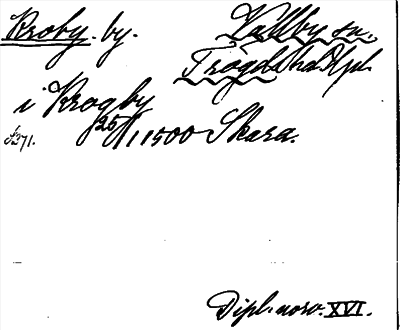 Kroby. by. Vallby sn.
Trögds hd Upl.
i Krogby
25/1 1500 Skara.
S. 371.
Dipl. norv. XVI.